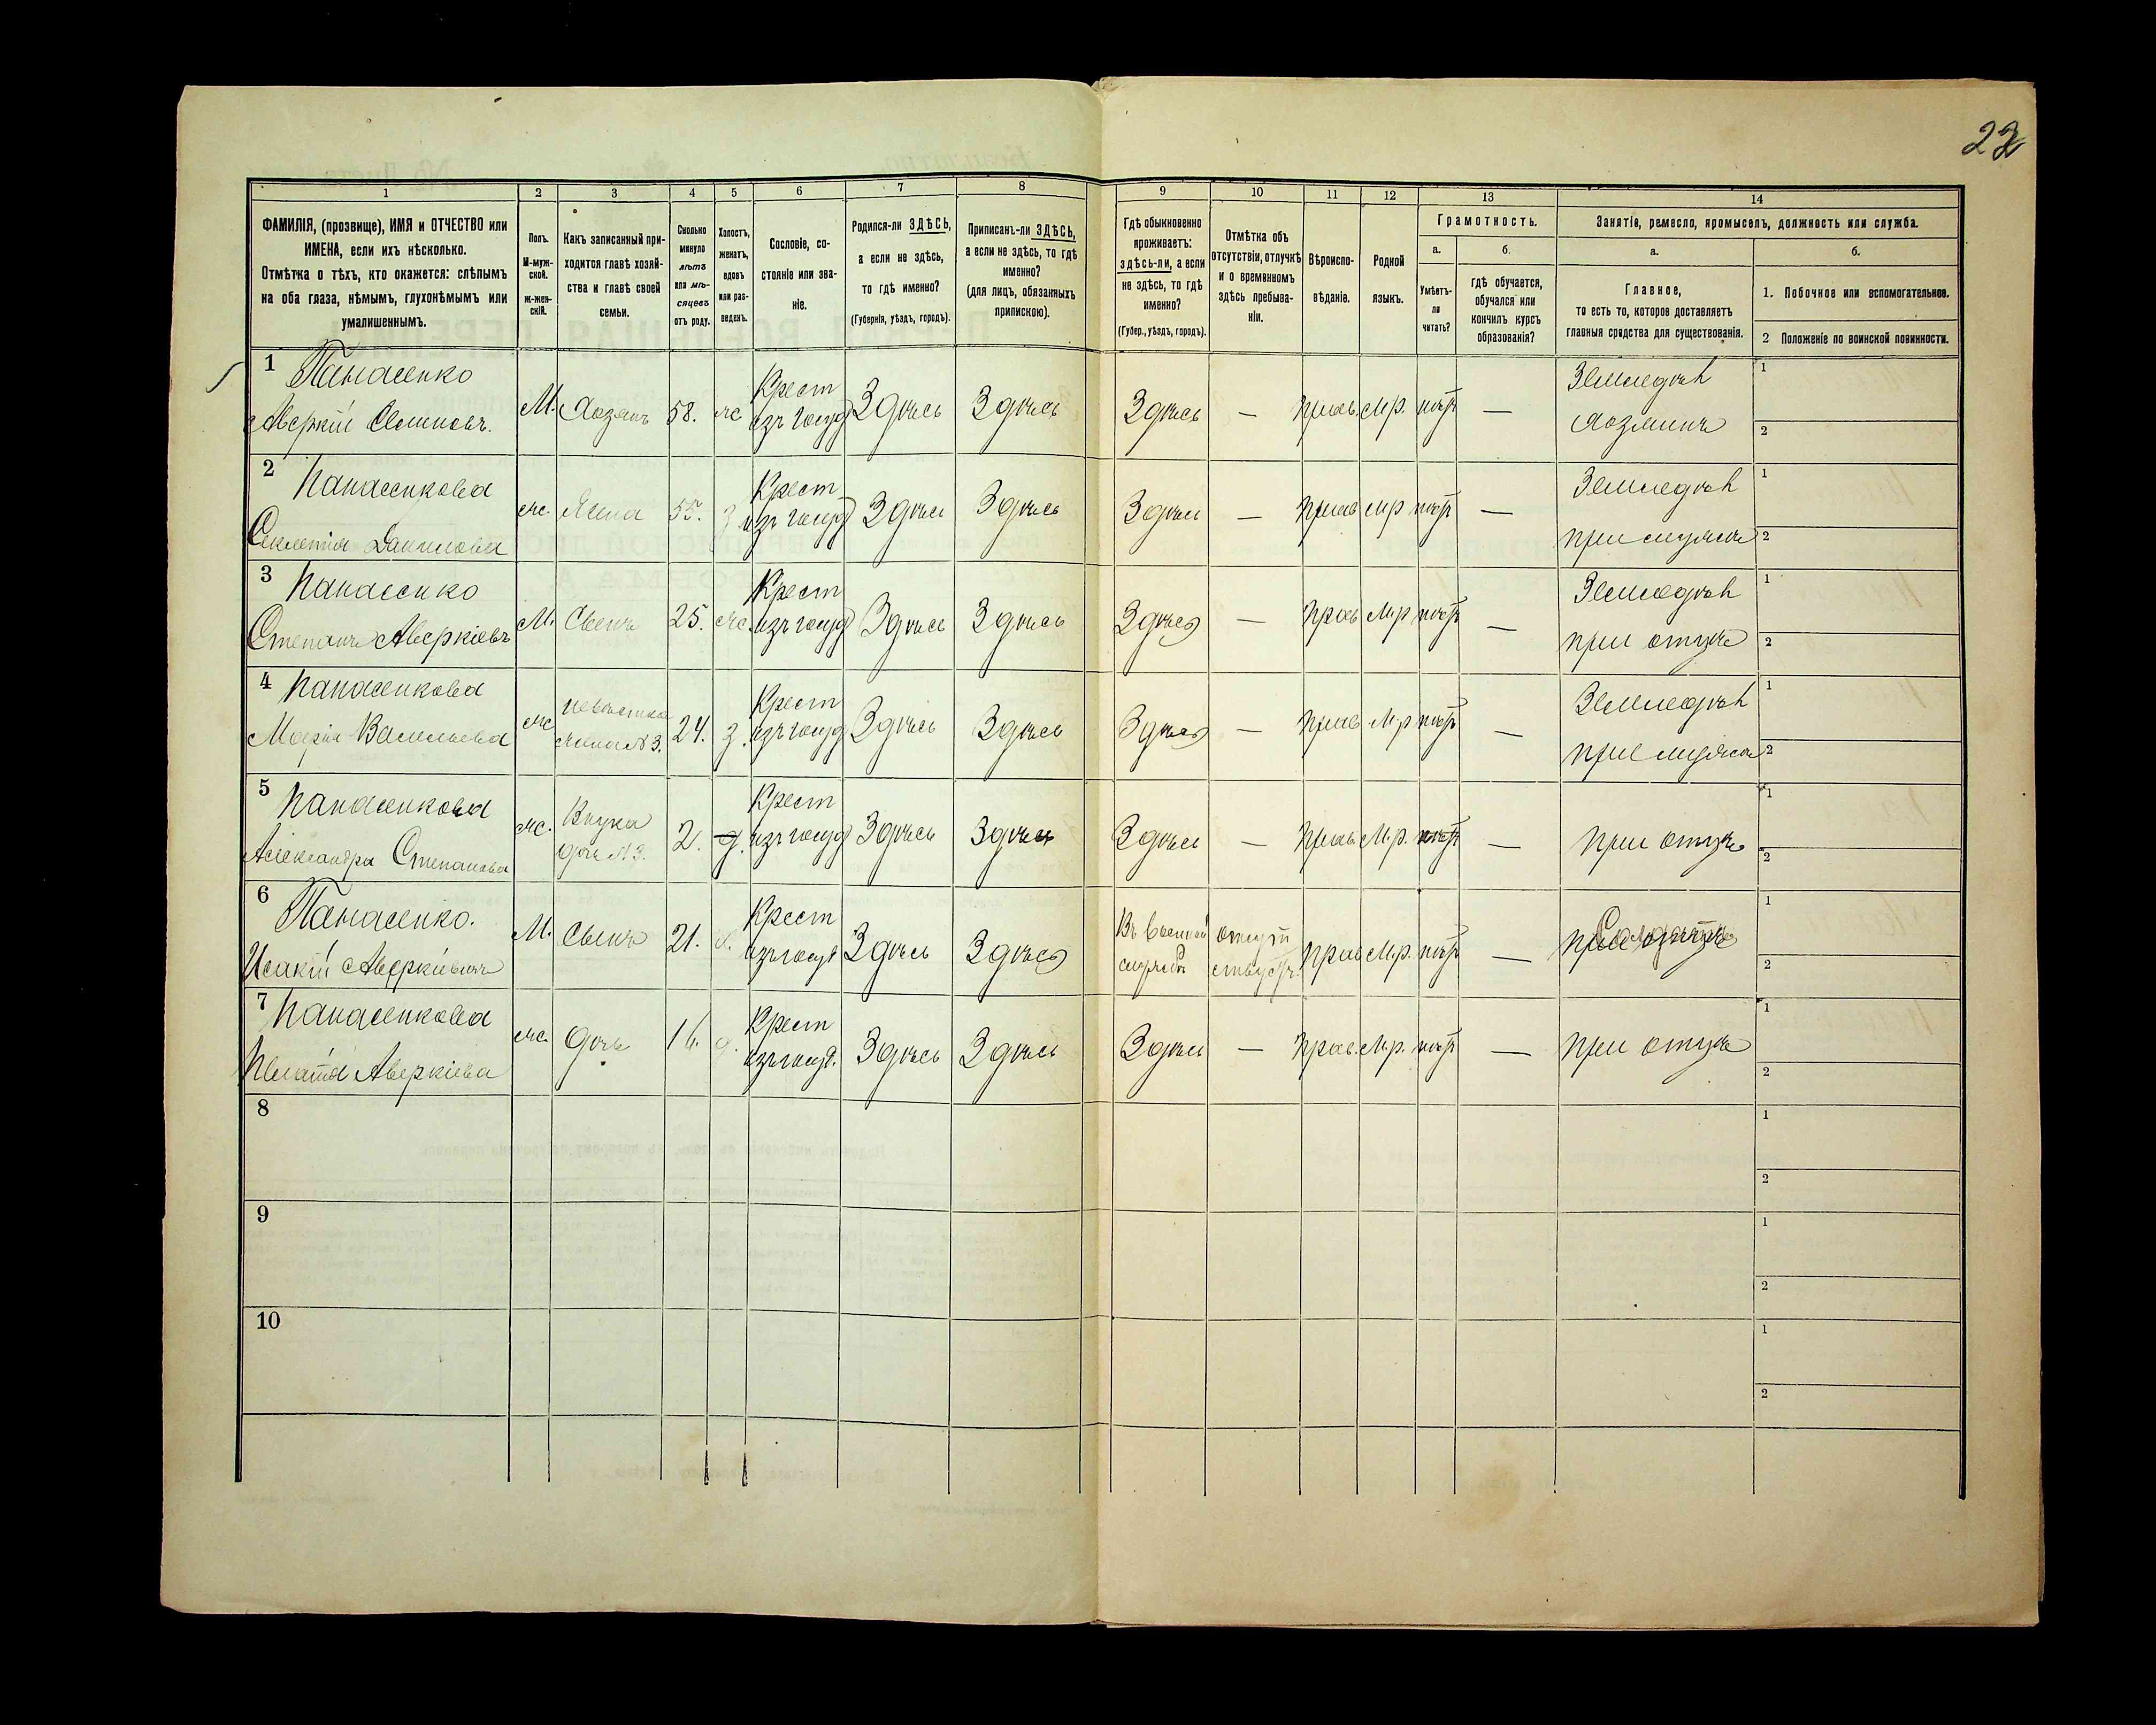 22
1
2
3
4
5
6
7
8
9
10
11
12
13
14
ФАМИЛІЯ, (прозвище), ИМЯ и ОТЧЕСТВО или
ИМЕНА, если ихъ нѣсколько.
Отмѣтка о тѣхъ, кто окажется: слѣпымъ
на оба глаза, нѣмымъ, глухонѣмымъ или
умалишеннымъ.
Полъ.
М-муж-
ской.
ж-жен-
скій.
Какъ записанный при-
ходится главѣ хозяй-
ства и главѣ своей
семьи.
Сколько
минуло
лѣтъ
или мѣ-
сяцевъ
отъ роду.
Холостъ,
женатъ,
вдовъ
или раз-
веденъ.
Сословіе, со-
стояніе или зва-
ніе.
Родился-ли ЗДѢСЬ,
а если не здѣсь,
то гдѣ именно?
(Губернія, уѣздъ, городъ).
Приписанъ-ли ЗДѢСЬ,
а если не здѣсь, то гдѣ
именно?
(для лицъ, обязанныхъ
припискою).
Гдѣ обыкновенно
проживаетъ:
здѣсь-ли, а если
не здѣсь, то гдѣ
именно?
(Губер., уѣздъ, городъ).
Отмѣтка объ
отсутствіи, отлучкѣ
и о временномъ
здѣсь пребыва-
ніи.
Вѣроиспо-
вѣданіе.
Родной
языкъ.
Грамотность.
а.
Умѣетъ-
ли
читать?
б.
гдѣ обучается,
обучался или
кончилъ курсъ
образованія?
Занятіе, ремесло, промыселъ, должность или служба.
а.
Главное,
то есть то, которое доставляетъ
главныя средства для существованія.
б.
1. Побочное или вспомогательное.
2 Положеніе по воинской повинности.
1 Панасенко
Аверкій Семиновъ.
М. Хозяинъ 58. ж Крест
изъ госуд Здѣсь Здѣсь Здѣсь — прав. М.р. нѣтъ —
Земледѣл
хозяинъ
1
2
2 Панасенкова
Секлетія Данилова
ж. Жена 55. з Крест
изъ госуд Здѣсь Здѣсь Здѣсь — прав М.р нѣтъ —
Земледѣл
при мужѣ
1
2
3 Панасенко
Степанъ Аверкіевъ
М. Сынъ 25. ж. Крест
изъ госуд Здѣсь Здѣсь Здѣсь — прав М.р нѣтъ —
Земледѣл
при отцѣ
1
2
4 Панасенкова
Марія Васильева
ж невѣстка
жена №3. 24. з. Крест
изъ госуд Здѣсь Здѣсь Здѣсь — прав М.р нѣтъ —
Земледѣл
при мужѣ
1
2
5 Панасенкова
Александра Степанова
ж. Внука
дочь №3. 2. д. Крест
изъ госуд Здѣсь Здѣсь Здѣсь — прав. М.р. нѣтъ —
при отцѣ
1
2
6 Панасенко.
Исакій Аверкіевичъ
М. Сынъ 21. Крест
изъ госуд Здѣсь Здѣсь
Въ военной
службѣ
отсут
ствуетъ. прав М.р. нѣтъ —
Солдатъ
1
2
7 Панасенкова
Аверкіева
ж. дочь 16. д. Крест
изъ госуд. Здѣсь Здѣсь Здѣсь — прав. М.р. нѣтъ —
при отцѣ
1
2
8
1
2
9
1
2
10
1
2